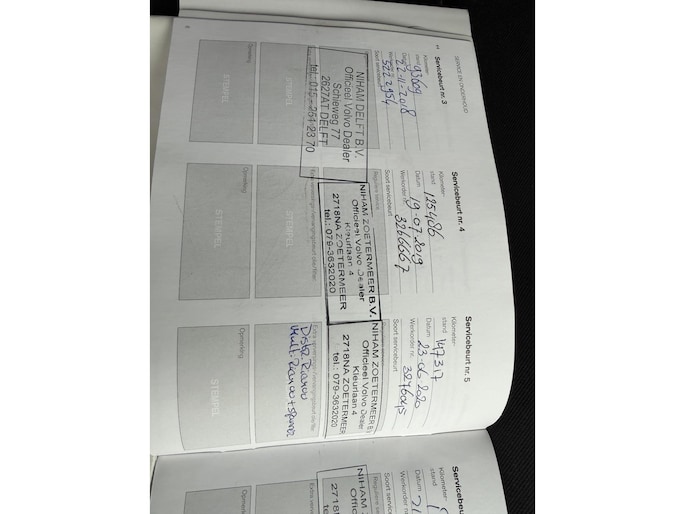 SERVICE EN ONDERHOUD
Servicebeurt nr. 3
Kilometer-
stand 93609
Datum 22-11-2018
Werkorder nr. 5222954
Soort servicebeurt
NIHAM DELFT B.V.
Officieel Volvo Dealer
Schieweg 77
2627AT DELFT
tel.: 015 - 251 23 70
STEMPEL
Opmerking
STEMPEL
Servicebeurt nr. 4
Kilometer-
stand 125486
Datum 19-07-2019
Werkorder nr. 3266667
Soort servicebeurt
Reguliere
NIHAM ZOETERMEER B.V.
Officieel Volvo Dealer
Kleurlaan 4
2718NA ZOETERMEER
tel.: 079-3632020
STEMPEL
Opmerking
STEMPEL
Servicebeurt nr. 5
Kilometer-
stand 147317
Datum 23-06-2020
Werkorder nr. 3276045
Soort servicebeurt
NIHAM ZOETERMEER B.V.
Officieel Volvo Dealer
Kleurlaan 4
2718NA ZOETERMEER
tel.: 079-3632020
Distr. Riem
Multi Riem + spann.
Opmerking
STEMPEL
Servicebeu
Kilometer-
stand
Datum
Werkorder nr
Soort service
Reguliere
NIHAM
Offic
2718
tel
Extra verve
Opmerking